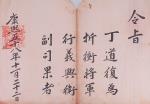 令旨
丁道復為
折衝將軍
行義興衛
副司果者
康熙五十八年十二月二十二日